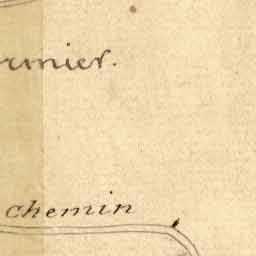 rmier.
chemin